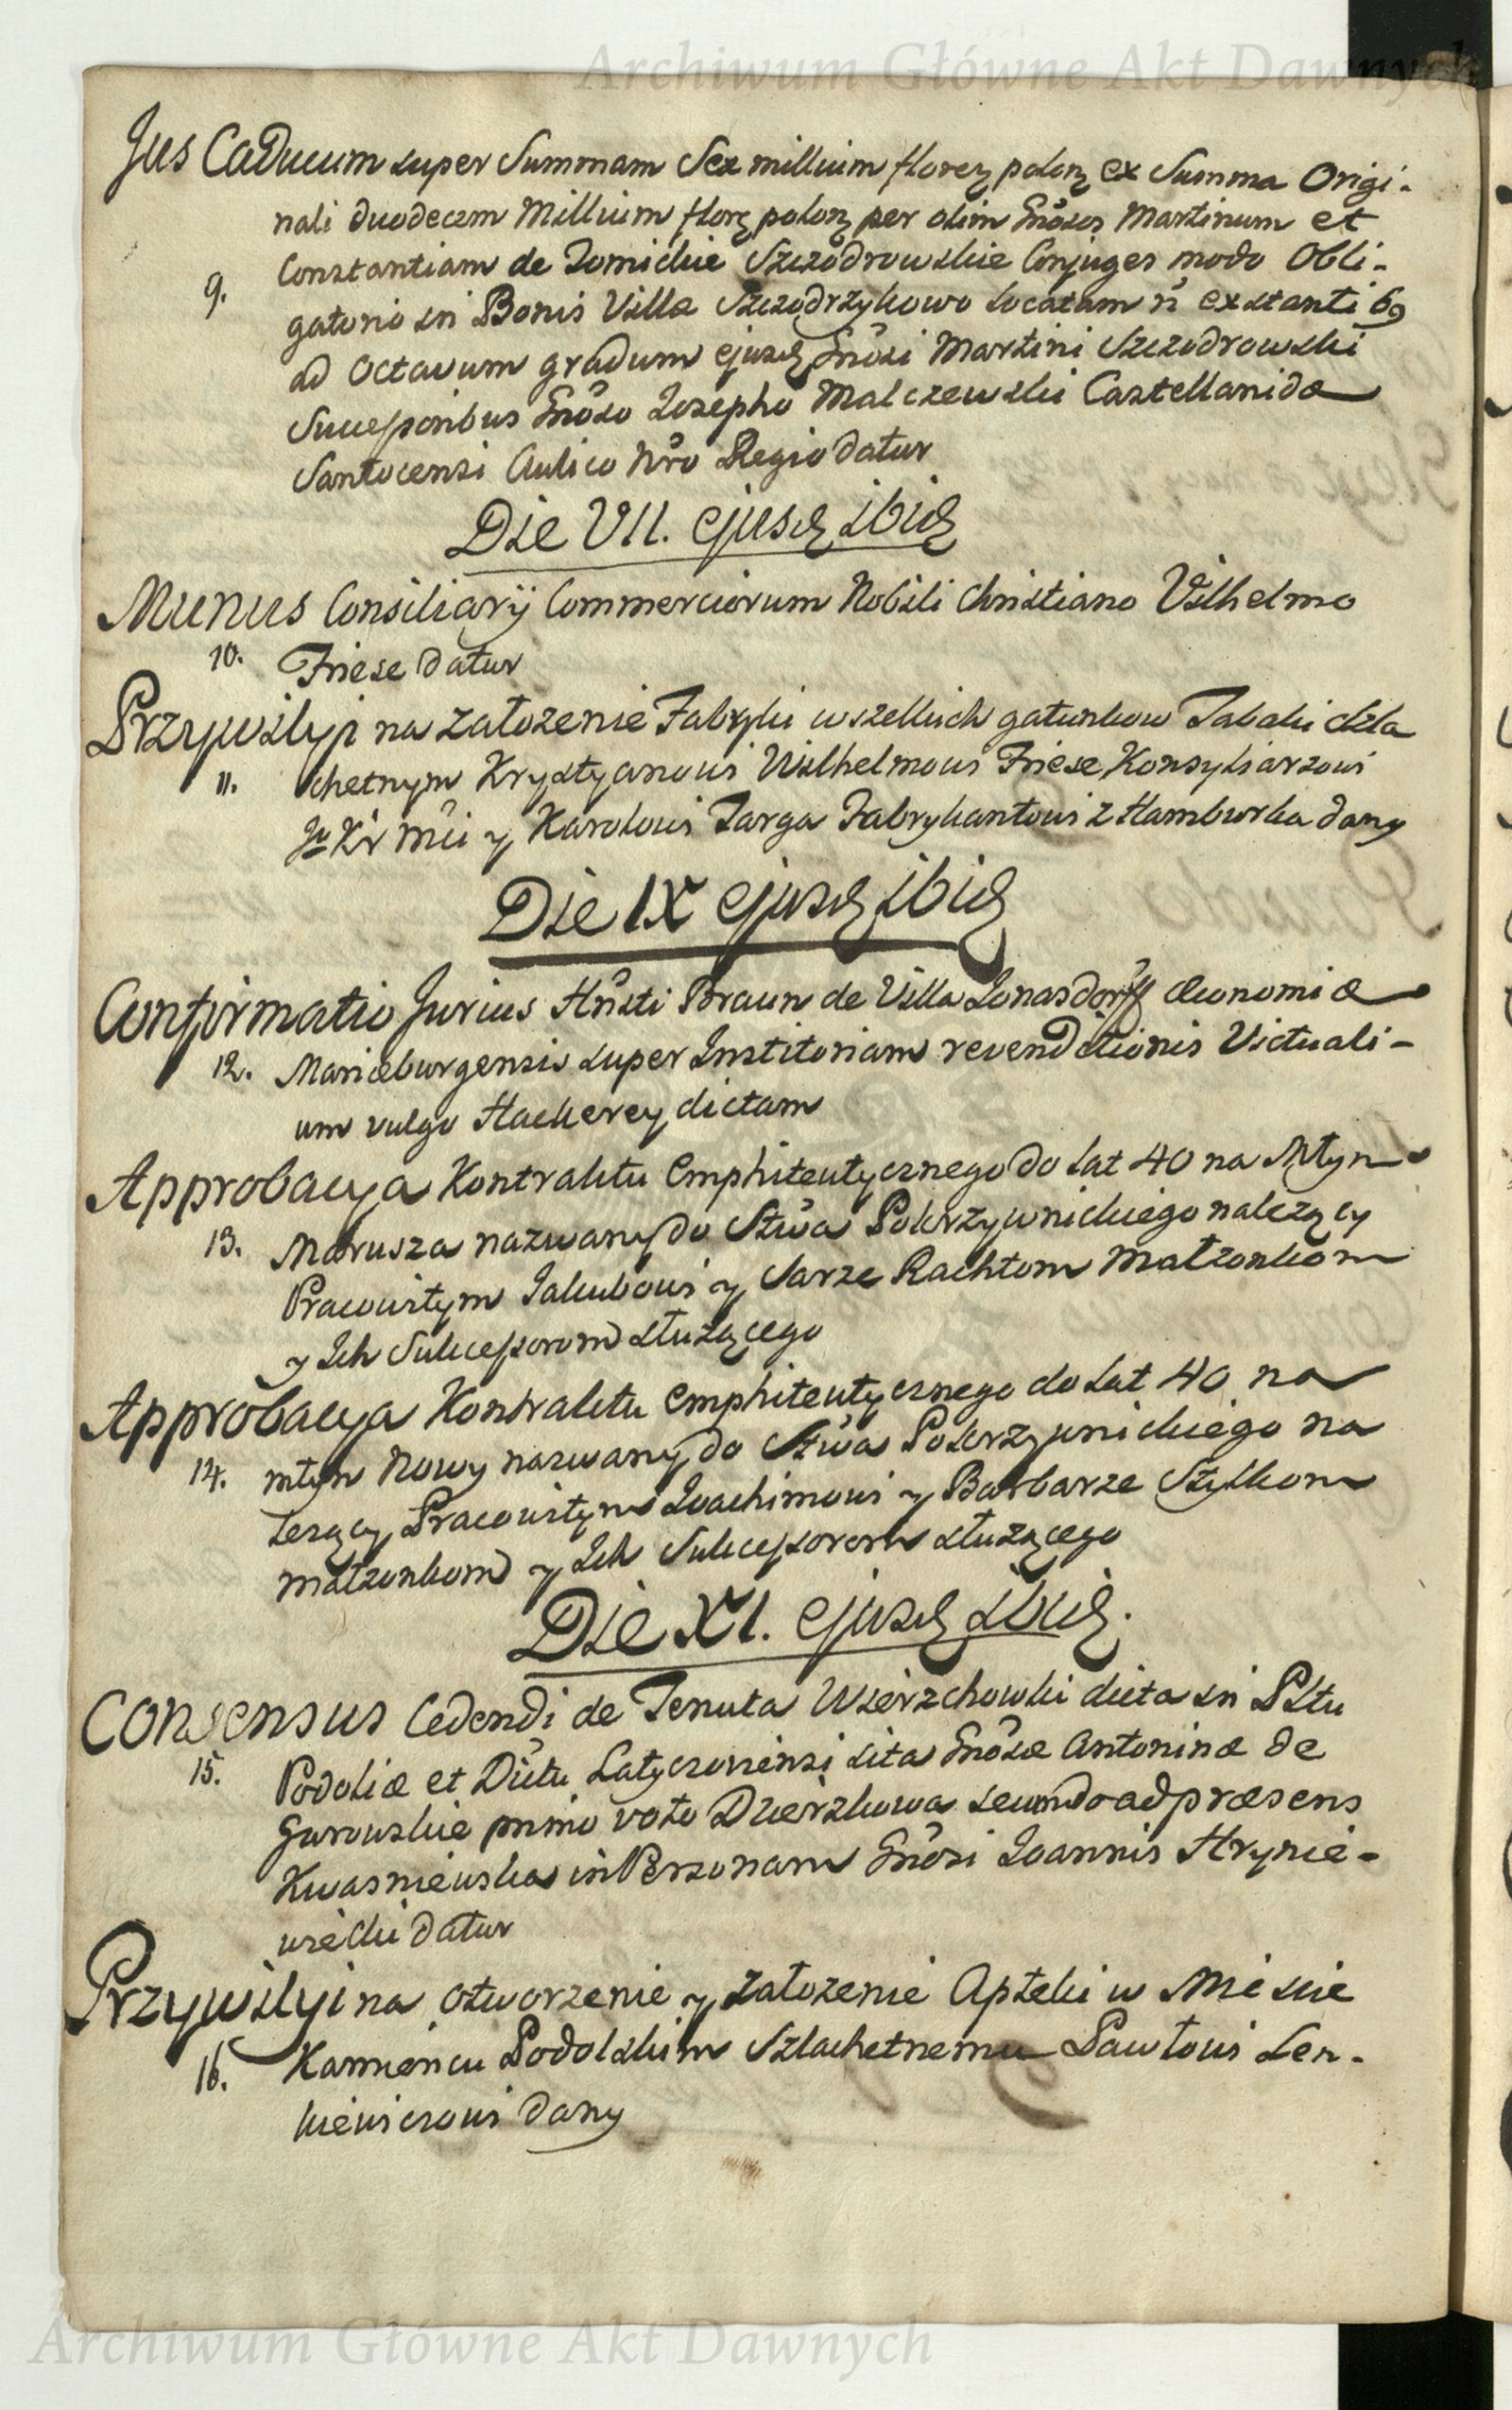 Archiwum Główne Akt Dawnych
Jus Caducum super Summam Sex millium floreꝝ polonꝝ ex Summa Origi-
nali duodecem Millium florꝝ polonꝝ per olim Gnosos Martinum et
9. Constantiam de Tomickie Szczodrowskie Conjuges modo Obli-
gatorio in Bonis Villa Szczodrzykowo locatam ñ exstantibꝯ
ad Octavum gradum ejusdꝫ Gnosi Martini Szczodrowski
Successoribus Gnoso Josepho Malczewski Castellanidæ
Santocensi Aulico Nro Regio datur
Die VII. ejusdꝫ ibidꝫ
Munus Consiliarij Commerciorum Nobili Christiano Vilhelmo
10. Friese datur
Przywilyi na załozenie Fabryki wszelkich gatunkow Tabaki Szla
11. chetnym Krystyanowi Wilhelmowi Friese Konsyliarzowi
Jo Kr Mci y Karolowi Targa Fabrykantowi z Hamburka dany
Die IX ejusdꝫ ibidꝫ
Confirmatio Jurius Hnsti Braun de Villa Jonasdorff Œconomiæ
12. Mariæburgensis super Institoriam revenditionis Victuali-
um vulgo Hackerey dictam
Approbacya Kontraktu Emphiteutycznego do lat 40 na Młyn
13. Marusza nazwany do Stwa Pokrzywnickiego nalezący
Pracowitym Jakubowi y Sarze Rachtom Małzonkom
y Ich Sukcessorom słuzącego
Approbacya Kontraktu Emphiteutycznego do lat 40 na
14. młyn Nowy nazwany do Stwa Pokrzywnickiego na
lezący Pracowitym Joachimowi y Barbarze Szylkom
małzonkom y Ich Sukcessorom słuzącego
Die XI. ejusdꝫ ibidꝫ.
Consensus Cedendi de Tenuta Wierzchowki dicta in Pltu
15. Podoliæ et Dittu Latyczoviensi sita Gnosæ Antoninæ de
Gurowskie primo voto Dzierzkowa secundo ad præsens
Kwasniewska in Personam Gnosi Joannis Hrynie-
wiecki datur
Przywilyi na otworzenie y załozenie Apteki w Miescie
16. Kamieńcu Podolskim Szlachetnemu Pawłowi Len-
kiewiczowi dany
Archiwum Główne Akt Dawnych